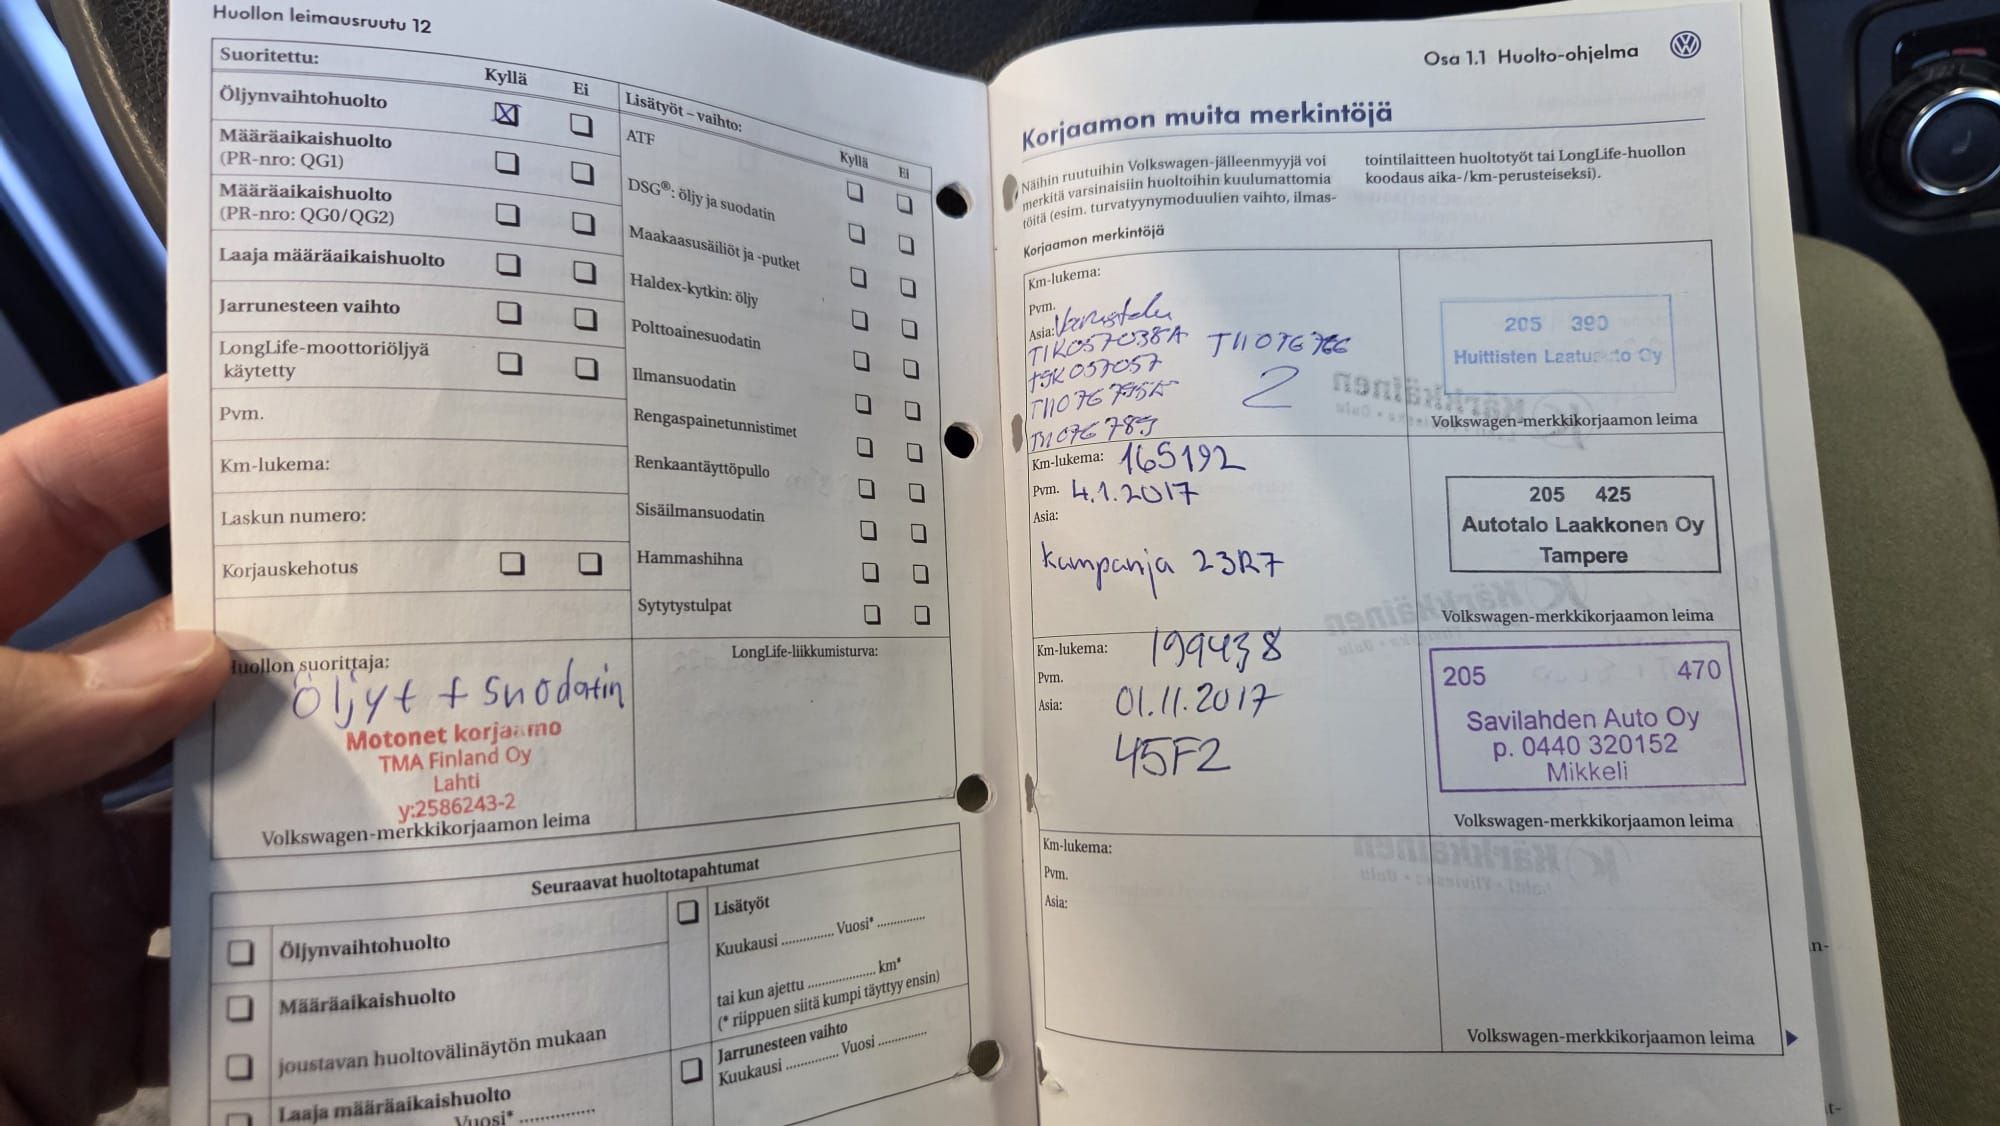 Huollon leimausruutu 12
Suoritettu:
Kyllä
Ei
Öljynvaihtohuolto
Määräaikaishuolto
(PR-nro: QG1)
Määräaikaishuolto
(PR-nro: QG0/QG2)
Laaja määräaikaishuolto
Jarrunesteen vaihto
LongLife-moottoriöljyä
käytetty
Pvm.
Km-lukema:
Laskun numero:
Korjauskehotus
Lisätyöt – vaihto:
Kyllä
Ei
ATF
DSG®: öljy ja suodatin
Maakaasusäiliöt ja -putket
Haldex-kytkin: öljy
Polttoainesuodatin
Ilmansuodatin
Rengaspainetunnistimet
Renkaantäyttöpullo
Sisäilmansuodatin
Hammashihna
Sytytystulpat
Huollon suorittaja:
Öljyt + suodatin
Motonet korjaamo
TMA Finland Oy
Lahti
y:2586243-2
Volkswagen-merkkikorjaamon leima
LongLife-liikkumisturva:
Seuraavat huoltotapahtumat
Öljynvaihtohuolto
Määräaikaishuolto
joustavan huoltovälinäytön mukaan
Laaja määräaikaishuolto
Vuosi* ..............
Lisätyöt
Kuukausi .............. Vuosi* .............
tai kun ajettu .................... km*
(* riippuen siitä kumpi täyttyy ensin)
Jarrunesteen vaihto
Kuukausi .............. Vuosi ..............
Osa 1.1 Huolto-ohjelma
Korjaamon muita merkintöjä
Näihin ruutuihin Volkswagen-jälleenmyyjä voi
merkitä varsinaisiin huoltoihin kuulumattomia
töitä (esim. turvatyynymoduulien vaihto, ilmas-
tointilaitteen huoltotyöt tai LongLife-huollon
koodaus aika-/km-perusteiseksi).
Korjaamon merkintöjä
Km-lukema:
Pvm.
Asia: Varustelu
T1K057038A T11076766
T11076795A
2
205 390
Huittisten Laatuauto Oy
Volkswagen-merkkikorjaamon leima
Km-lukema: 165192
Pvm. 4.1.2017
Asia:
kampanja 23R7
205 425
Autotalo Laakkonen Oy
Tampere
Volkswagen-merkkikorjaamon leima
Km-lukema: 199438
Pvm.
Asia: 01.11.2017
45F2
205 470
Savilahden Auto Oy
p. 0440 320152
Mikkeli
Volkswagen-merkkikorjaamon leima
Km-lukema:
Pvm.
Asia:
Volkswagen-merkkikorjaamon leima
n-
t-